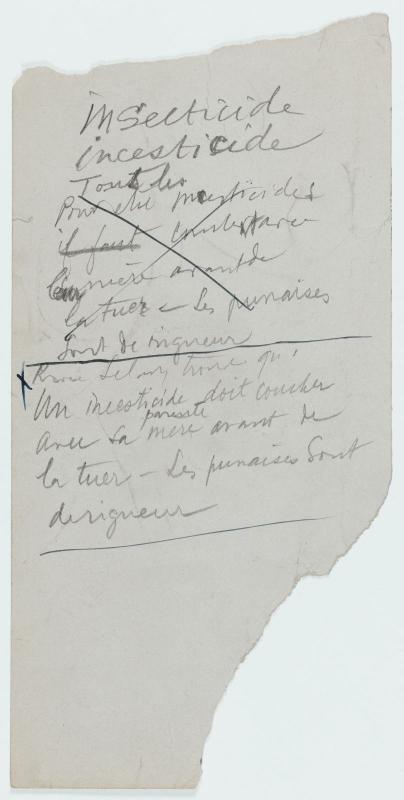 insecticide
incesticide
Tous les
Pour être incesticides
il faut coucher avec
mère avant de
la tuer – Les punaises
sont de rigueur
Rrose Sélavy trouve qu'
un incesticide doit coucher
parasite
avec sa mère avant de
la tuer – Les punaises sont
de rigueur